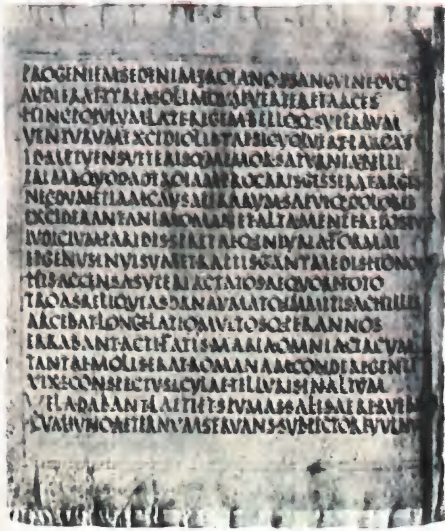 PROGENIEMSEDENIMTROIANOASANGVINEDVCI
AVDIERATTYRIASOLIMQVAEVERTERETARCES
HINCPOPVLVMLATEREGEMBELLOQSVPERBVM
VENTVRVMEXCIDIOLIBYAESICVOLVEREPARCAS
IDMETVENSVETERISQMEMORSATVRNIABELLI
PRIMAQVODADTROIAMPROCARISGESSERATARGIS
NECDVMETIAMCAVSAEIRARVMSAEVIQDOLORES
EXCIDERANTANIMOMANETALTAMENTEREPOST
IVDICIVMPARIDISSPRETAEQINIVRIAFORMAE
ETGENVSINVISVMETRAPTISGANYMEDISHONO
HISACCENSASVPERIACTATOSAEQVORETOTO
TROASRELIQVIASDANAVMATQIMMITISACHILLI
ARCEBATLONGELATIOMVLTOSQPERANNOS
ERRABANTACTIFATISMARIAOMNIACIRCVM
TANTAEMOLISERATROMANAMCONDEREGENTE
VIXECONSPECTVSICVLAETELLVRISINALTVM
VELADABANTLAETIETSPVMASSALISAERERVEB
CVMIVNOAETERNVMSERVANSSVBPECTOREVVLN